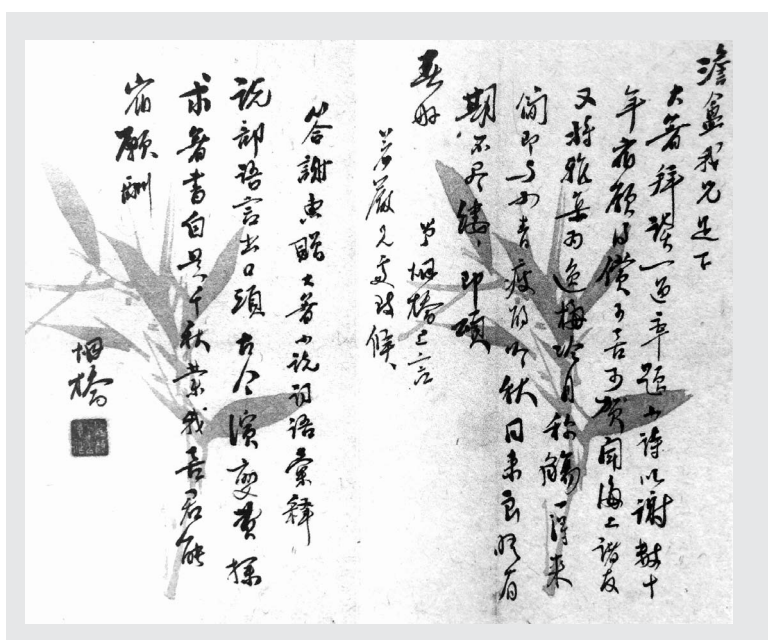 澹盦我兄足下
大著拜讀一過率題小詩以謝數十
年宿願得償可喜可賀聞海上諸友
又將雅集為逸梅吟月稱觴一得来
簡即与小青瘦鵑吟秋同来良晤有
期不尽縷〻即頌
春好 弟烟橋上言
若嚴兄處致候
答謝惠贈大著小説詞語彙釋
説部語言出口頭古今演變費探
求著書自是千秋業我喜君能
宿願酬
烟橋